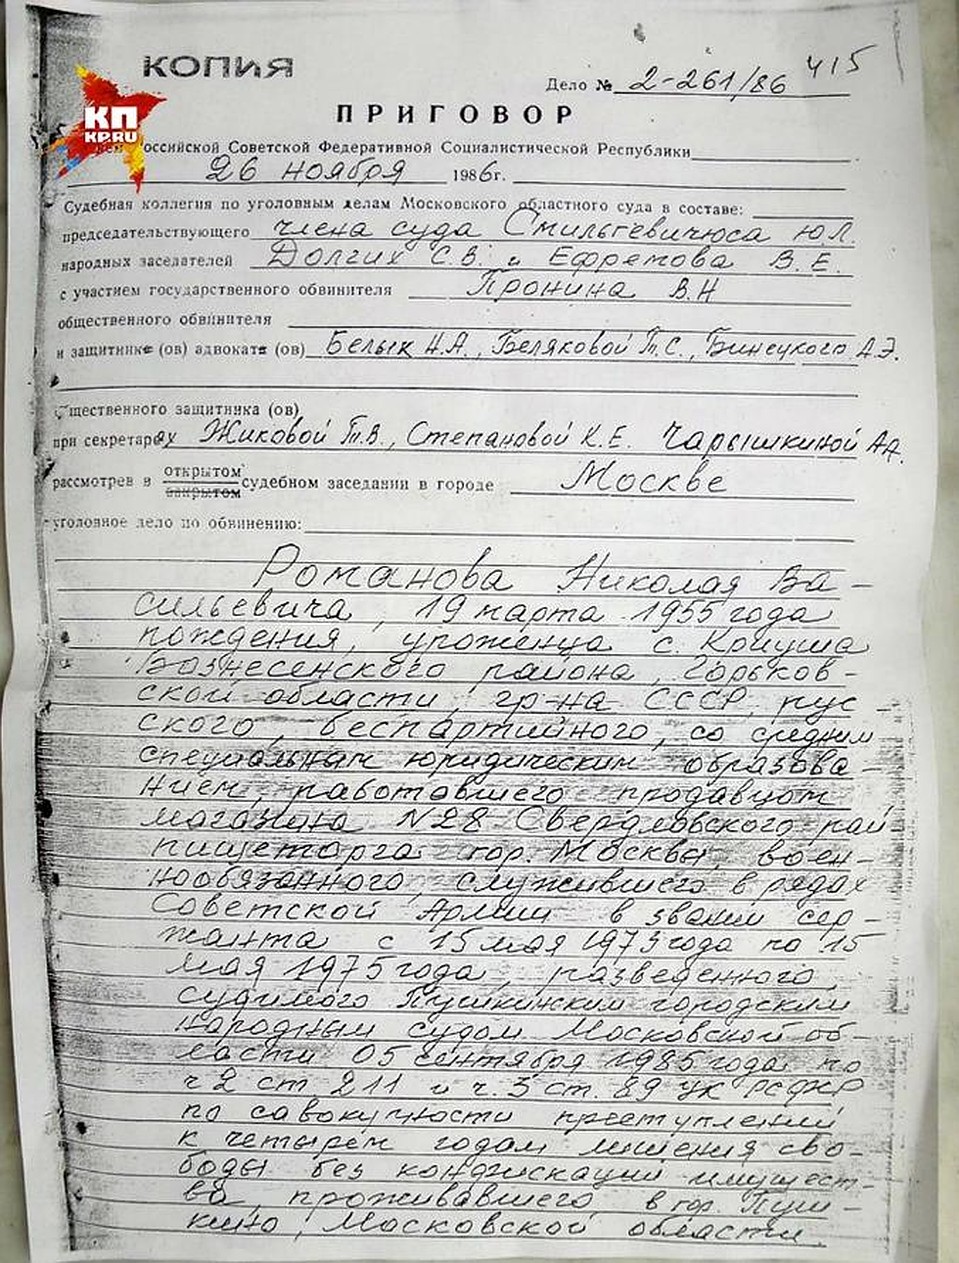 КОПИЯ
415
Дело № 2-261/86
ПРИГОВОР
КП
KP.RU
Российской Советской Федеративной Социалистической Республики
26 ноября 1986г.
Судебная коллегия по уголовным делам Московского областного суда в составе:
председательствующего члена суда Стильгевичюса Ю.Л.
народных заседателей Долгих С.В. и Ефремова В.Е.
с участием государственного обвинителя Пронина В.Н
общественного обвинителя
и защитнике (ов) адвоката (ов) Белык Н.А., Беляковой Т.С., Бинецкого А.Э.
щественного защитника (ов)
при секретарях Жиковой Т.В., Степановой К.Е. Чарышкиной А.А.
открытом
рассмотрев в закрытом судебном заседании в городе Москве
уголовное дело по обвинению:
Романова Николая Ва-
сильевича, 19 марта 1955 года
рождения, уроженца с. Криуша
Вознесенского района, Горьков-
ской области, гр-на СССР, рус-
ского, беспартийного, со средним
специальным юридическим образова-
нием, работавшего продавцом
магазина N28 Свердловского рай
пищеторга гор. Москвы, воен-
нообязанного, служившего в рядах
Советской Армии в звании сер-
жанта с 15 мая 1973 года по 15
мая 1975 года, разведенного,
судимого Пушкинским городским
народным судом Московской об-
ласти 05 сентября 1985 года по
ч 2 ст 211 и ч. 3 ст. 89 УК РСФСР
по савокупности преступлений
к четырем годам лишения сво-
боды без конфискации имущест-
ва, проживавшего в гор. Пуш-
кино, Московской области